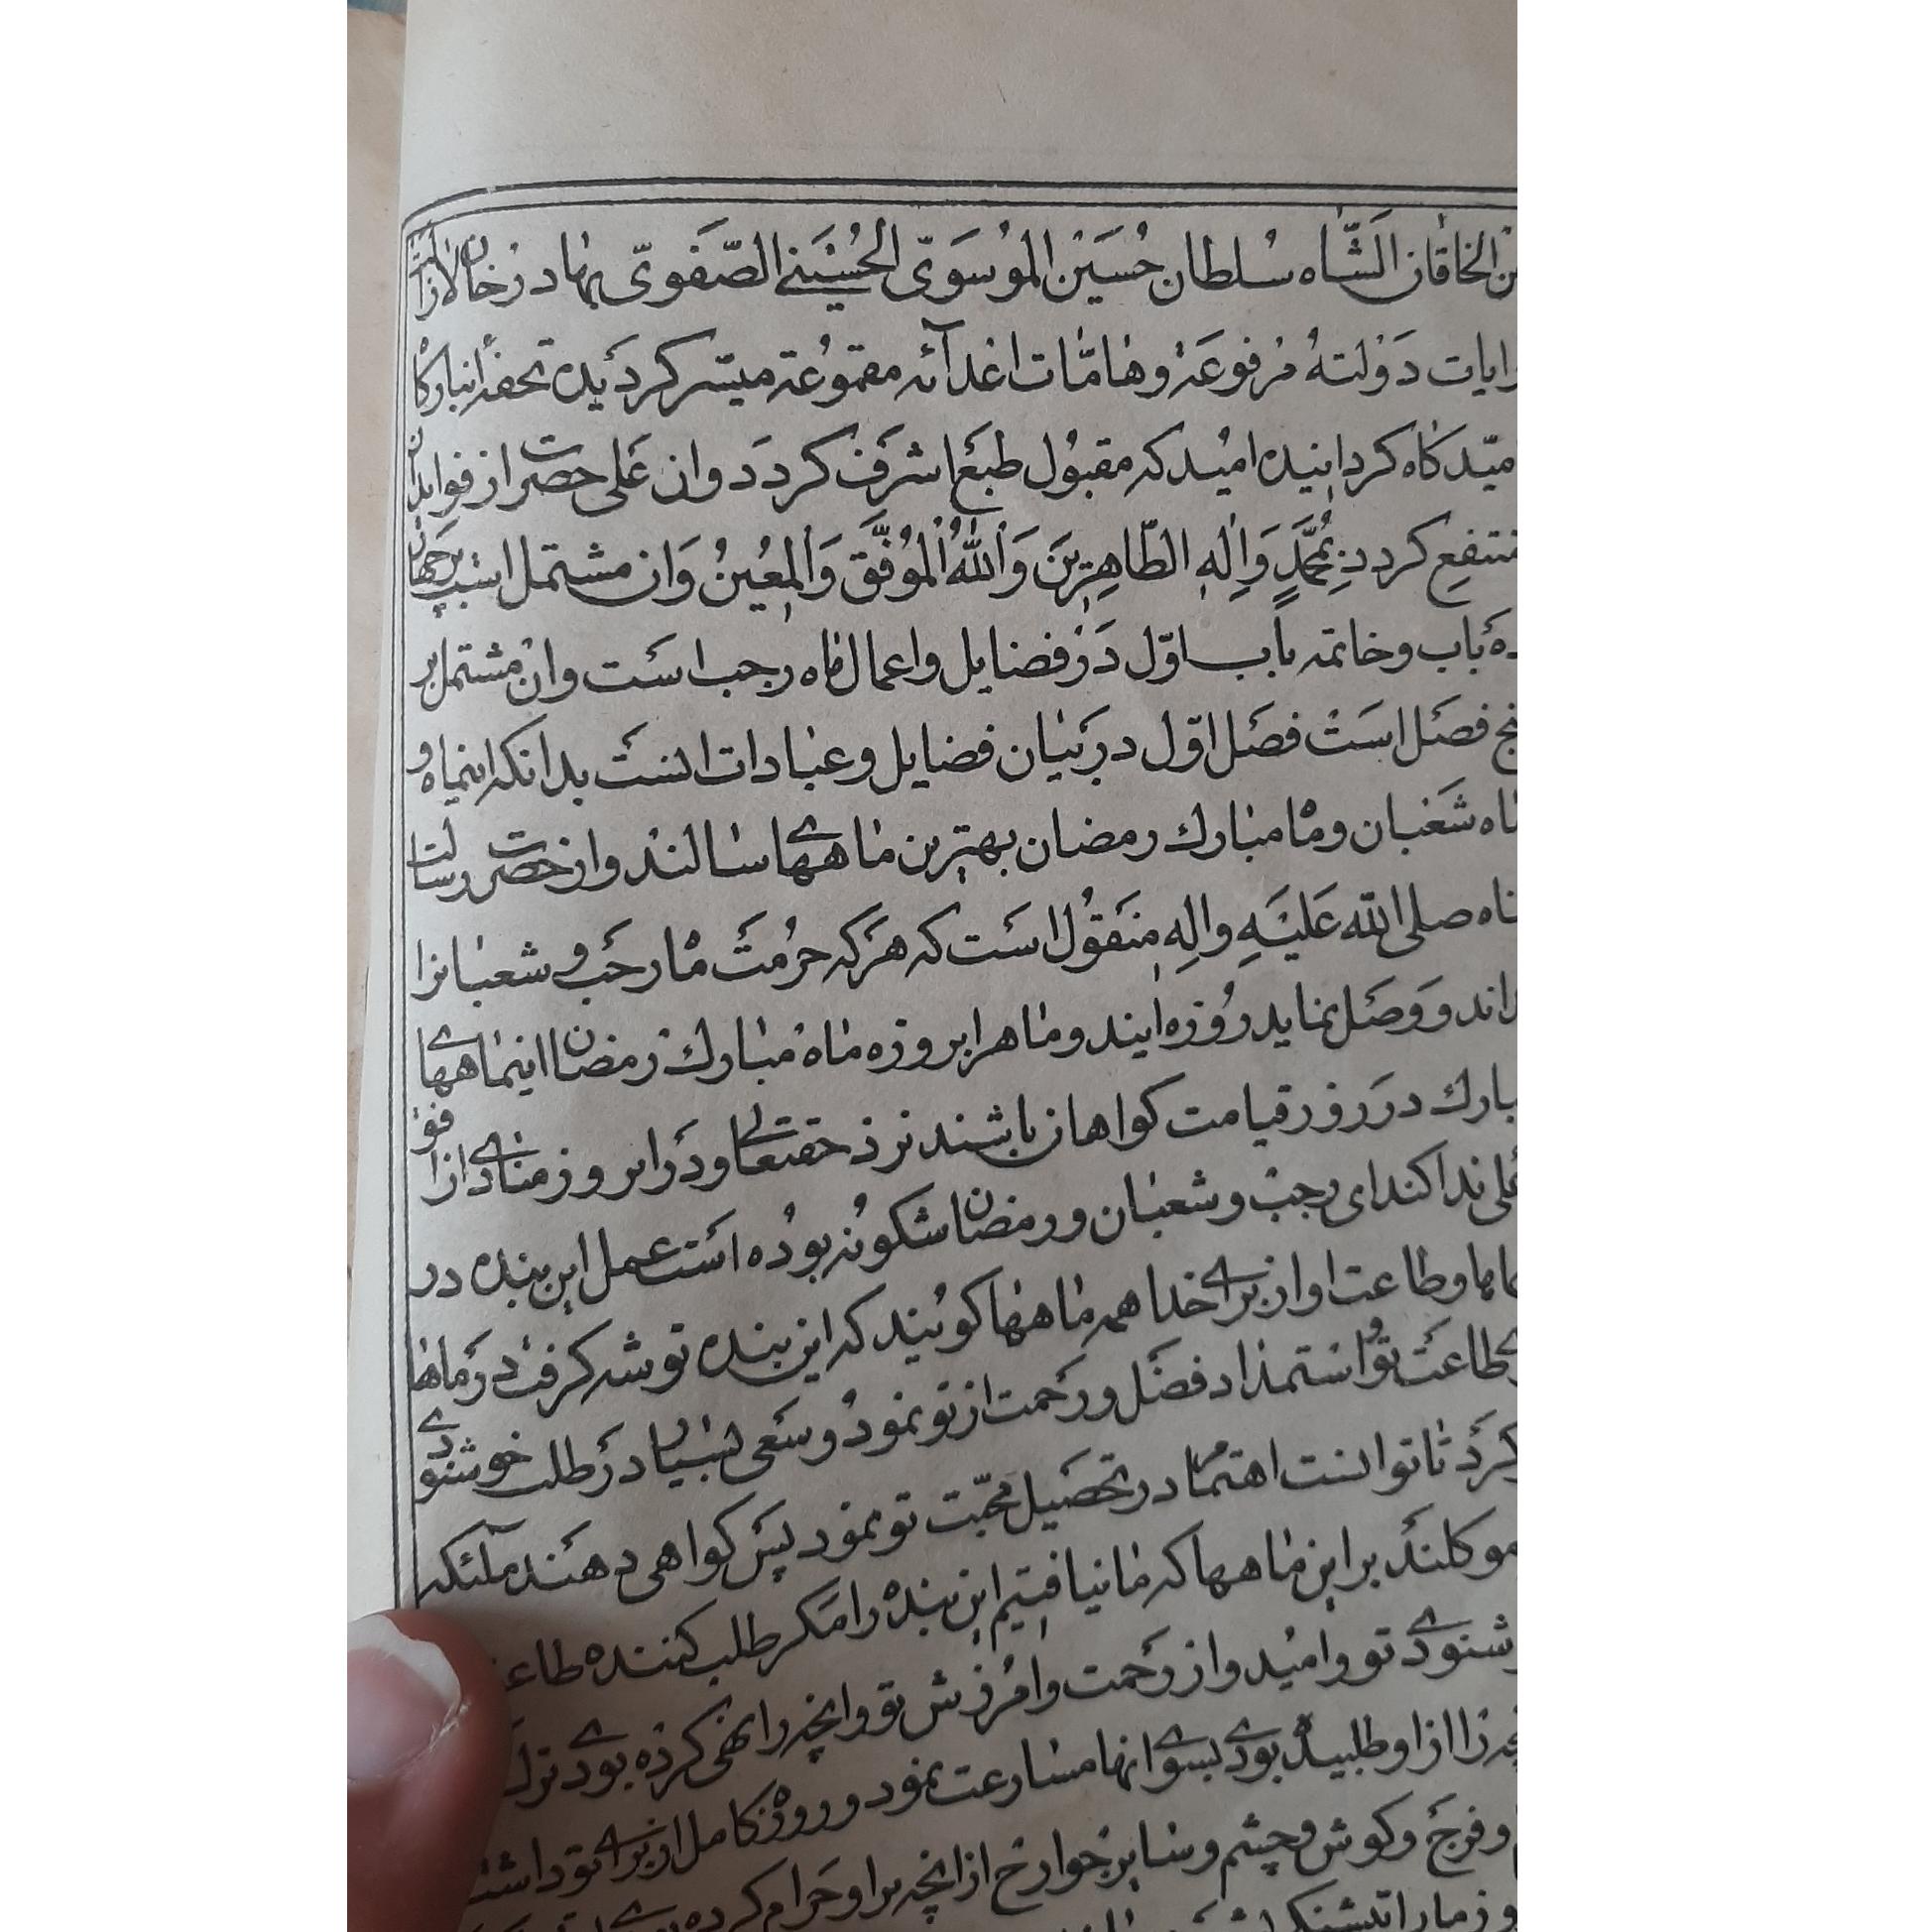 الخاقان الشّاه سُلطان حُسَیْن المُوسَویّ الحُسَیْنی الصّفَویّ بهادر خان لازالت
رایات دَوْلته مرفوعَة وهامّات اعدآئه مقموُعة میسّر کردیده تحفه انبارکاه
امیّد کاه کردانیده امیُد که مقبوُل طبعَ اشرَف کردد و ان عَلی حضرت از فواید ان
منتفع کردد بِمُحَمَّدٍ وَاٰلِهِ الطّاهِرِینَ وَاللهُ المُوُفَّق وَالمُعِینُ وَان مشتمل است بر چهار
ده باب و خاتمه باب اوّل دَر فضایل و اعمال ماه رجب است و ان مشتمل بر
پنج فصَل است فصَل اوّل در بَیان فضایل و عبادات انست بدانکه اینماه و
ماه شَعبان و ماه مبارك رمضان بهترین ماههای سالند و از حضرت رسالت
پناه صلی الله عَلیَهِ وَالِهِ منقوُل است که هرکه حرُمتَ ماه رجب و شعبانرا
داند و وَصَل نماید روُزه ایند و ماهرا بروزه ماه مبارك رمضان اینماههای
مبارك در روز قیامت کواهان باشند نزد حقتعالی و دَر ان روز منادی از
علی ندا کند ای رجب و شعبان و رمضان شکونه بوُده است عمل این بنده در
شما و طاعت او از برای خدا همه ماهها کویُند که این بنده توشه کرفت در ماها
طاعت تو استمداد فضَل و رحمت از تو نموُد و سَعی بسیار در طلب خوشنودی
کرد تا توانست اهتمام در تحصیل محبّت تو نمود پس کواهی دهند ملآئکه
موکلند بر این ماهها که ما نیافتیم این بنده را مکر طلب کننده طاعت
خشنودی تو و امیُدوار رحمت و امُرزش تو و انچه را نهی کرده بودی ترك
انچه را از او طلبیده بودی بسوی انها مسارعت نمود و روزه کامل از برای تو داشت
و فرج و کوش و چشم و سایر جوارح از انچه بر او حرام کرده